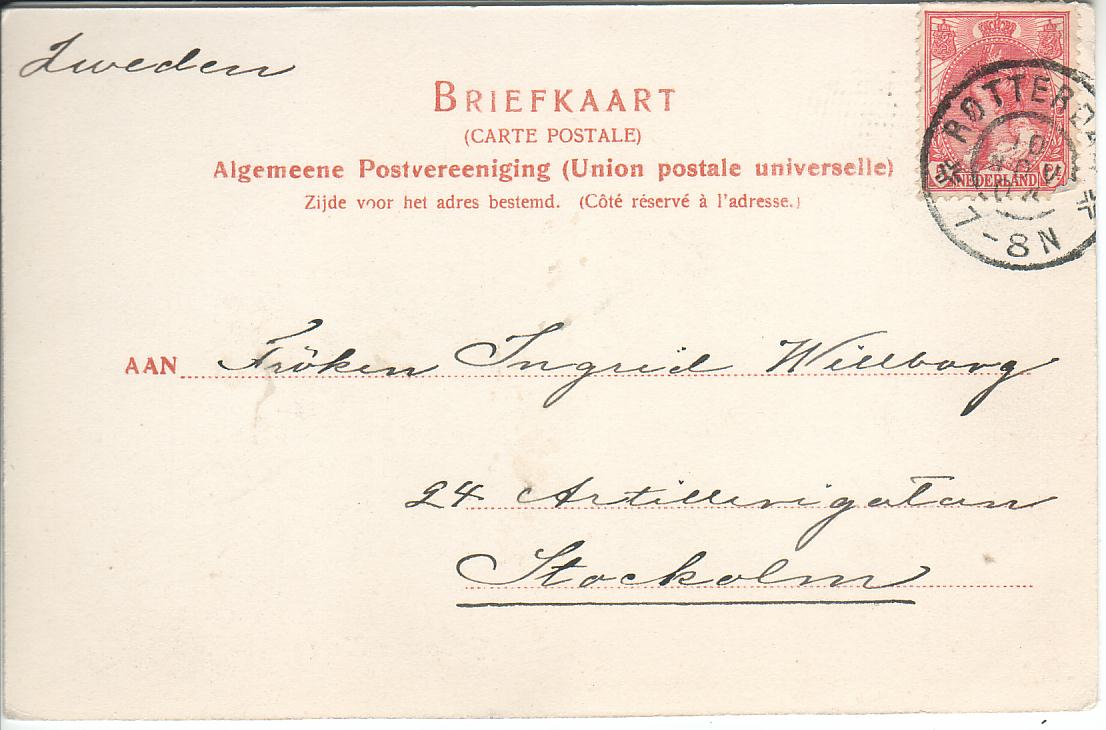 Zweden
BRIEFKAART
(CARTE POSTALE)
Algemeene Postvereeniging (Union postale universelle)
Zijde voor het adres bestemd. (Côté réservé à l'adresse.)
NEDERLAND
ROTTERDA
7-8N
AAN Fröken Ingrid Willborg
24 Artillerigatan
Stockolm